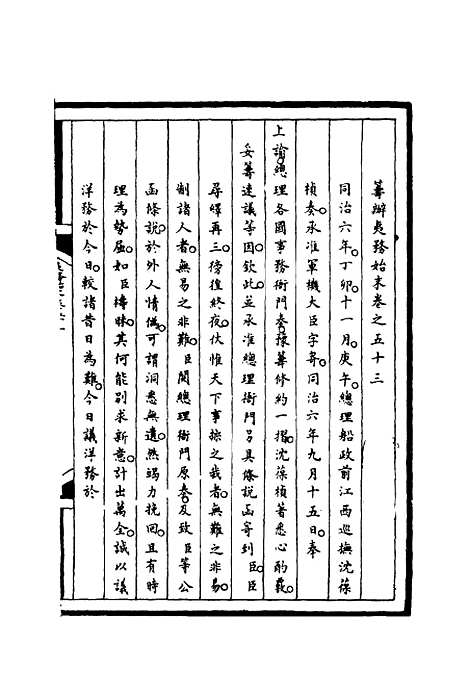 籌辦夷務始末卷之五十三
同治六年。丁卯。十一月。庚午。總理船政前江西巡撫沈葆
楨奏。承准軍機大臣字寄。同治六年九月十五日。奉
上諭。總理各國事務衙門奏。豫籌修約一摺。沈葆楨著悉心酌覈。
妥籌速議等因。欽此。並承准總理衙門另具條說。函寄到臣。臣
尋繹再三。徬徨終夜。伏惟天下事操之我者。無難之非易。
制諸人者。無易之非難。臣閱總理衙門原奏。及致臣等公
函條說。於外人情偽。可謂洞悉無遺。然竭力挽回。且有時
理為勢屈。如臣檮昧。其何能別求新意。計出萬全。誠以議
洋務於今日。較諸昔日為難。今日議洋務於